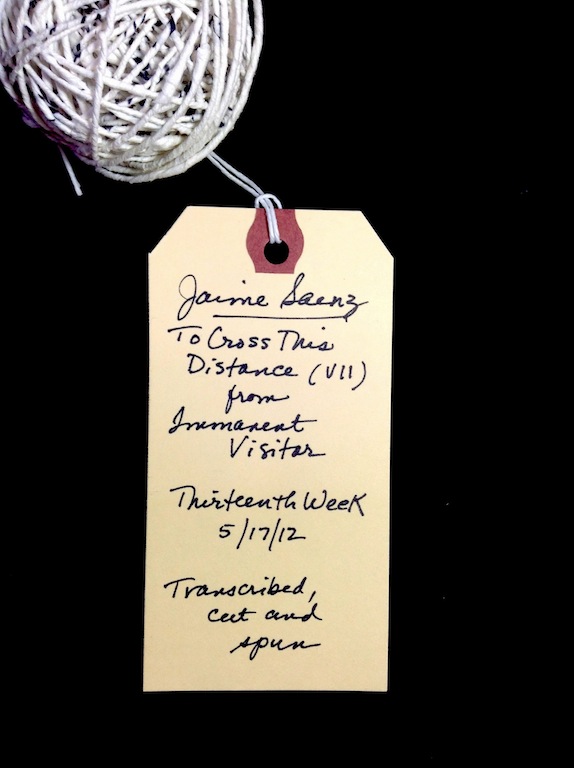 Jaime Saenz
To Cross This
Distance (VII)
from
Immanent
Visitor
Thirteenth Week
5/17/12
Transcribed,
cut and
spun